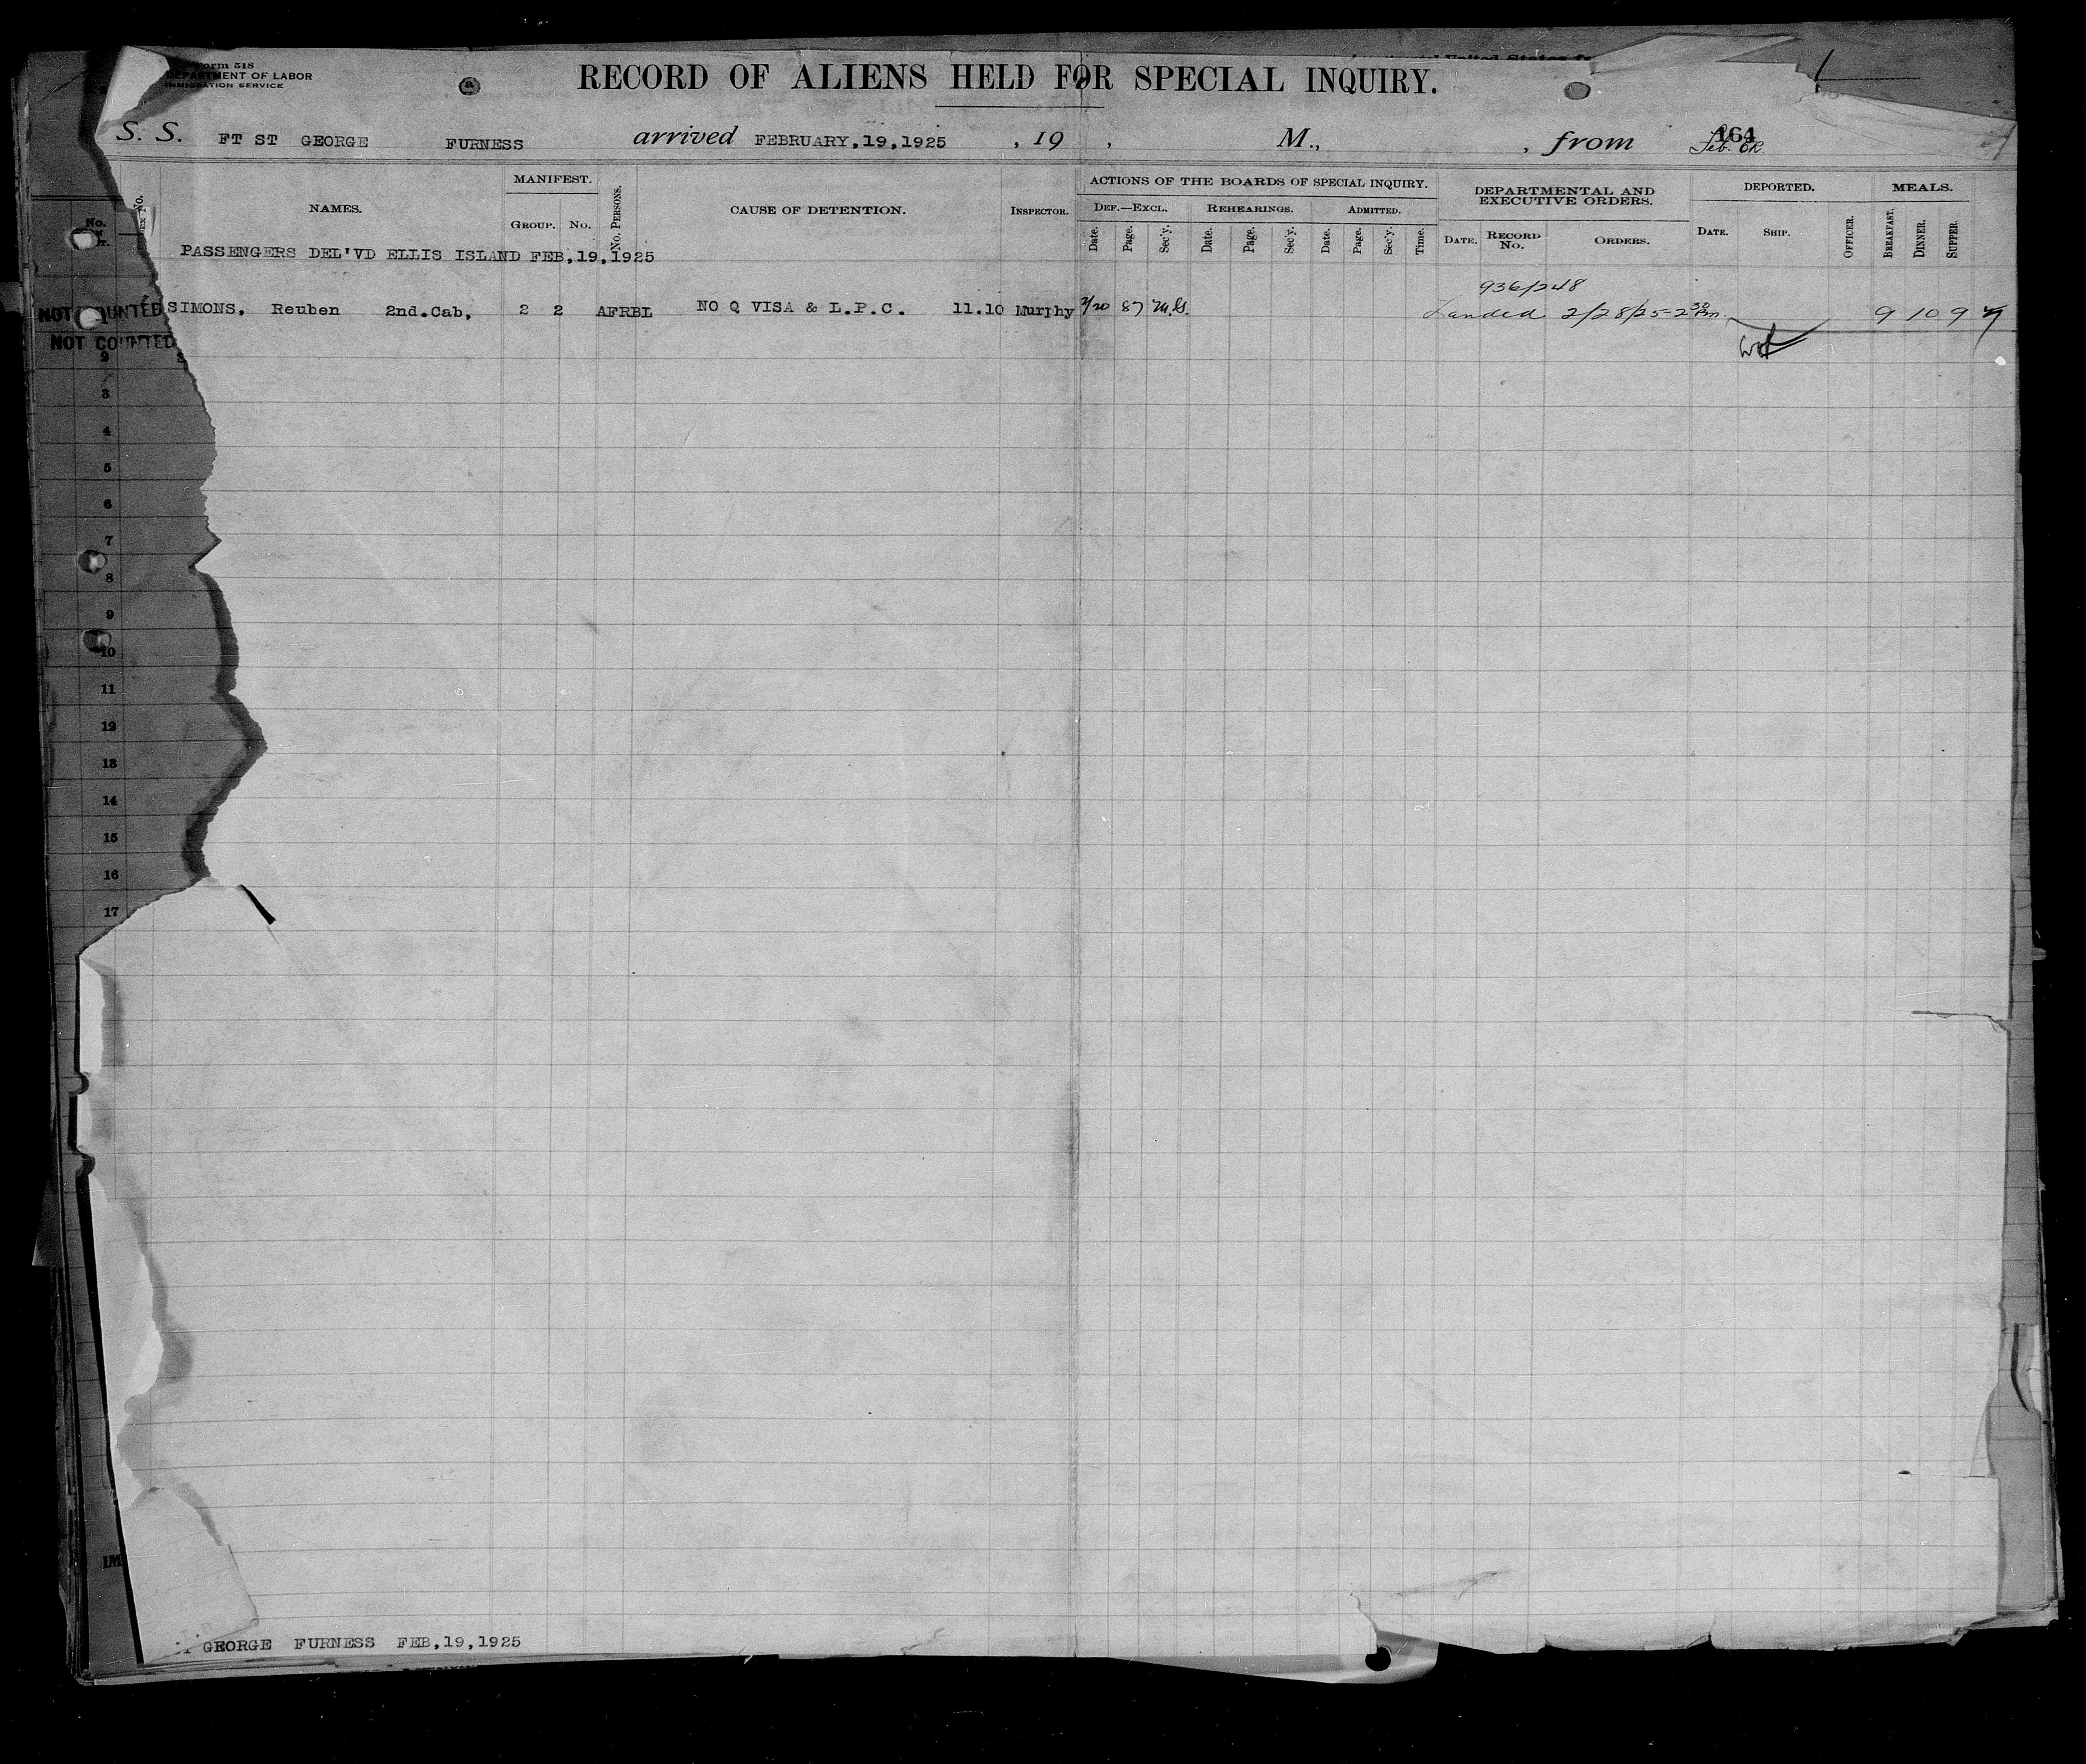 Form 518
DEPARTMENT OF LABOR
IMMIGRATION SERVICE
RECORD OF ALIENS HELD FOR SPECIAL INQUIRY.
S. S. FT ST GEORGE FURNESS arrived FEBRUARY,19,1925 , 19 , M., , from
164
MANIFEST.
ACTIONS OF THE BOARDS OF SPECIAL INQUIRY.
DEPARTMENTAL AND EXECUTIVE ORDERS.
DEPORTED.
MEALS.
No.
NAMES.
GROUP. No.
No. PERSONS.
CAUSE OF DETENTION.
INSPECTOR.
DEF.—EXCL. REHEARINGS. ADMITTED.
Date. Page. Sec'y. Date. Page. Sec'y. Date. Page. Sec'y. Time.
DATE. RECORD No. ORDERS.
DATE. SHIP. OFFICER.
BREAKFAST. DINNER. SUPPER.
PASSENGERS DEL'VD ELLIS ISLAND FEB,19,1925
936/248
NOT COUNTED SIMONS, Reuben 2nd.Cab, 2 2 AFRBL NO Q VISA & L.P.C. 11.10 Murphy 2/20 87 Landed 2/28/25-2 30 Pm. 9 10 9
NOT COUNTED
2
3
4
5
6
7
8
9
10
11
12
13
14
15
16
17
IM
GEORGE FURNESS FEB,19,1925